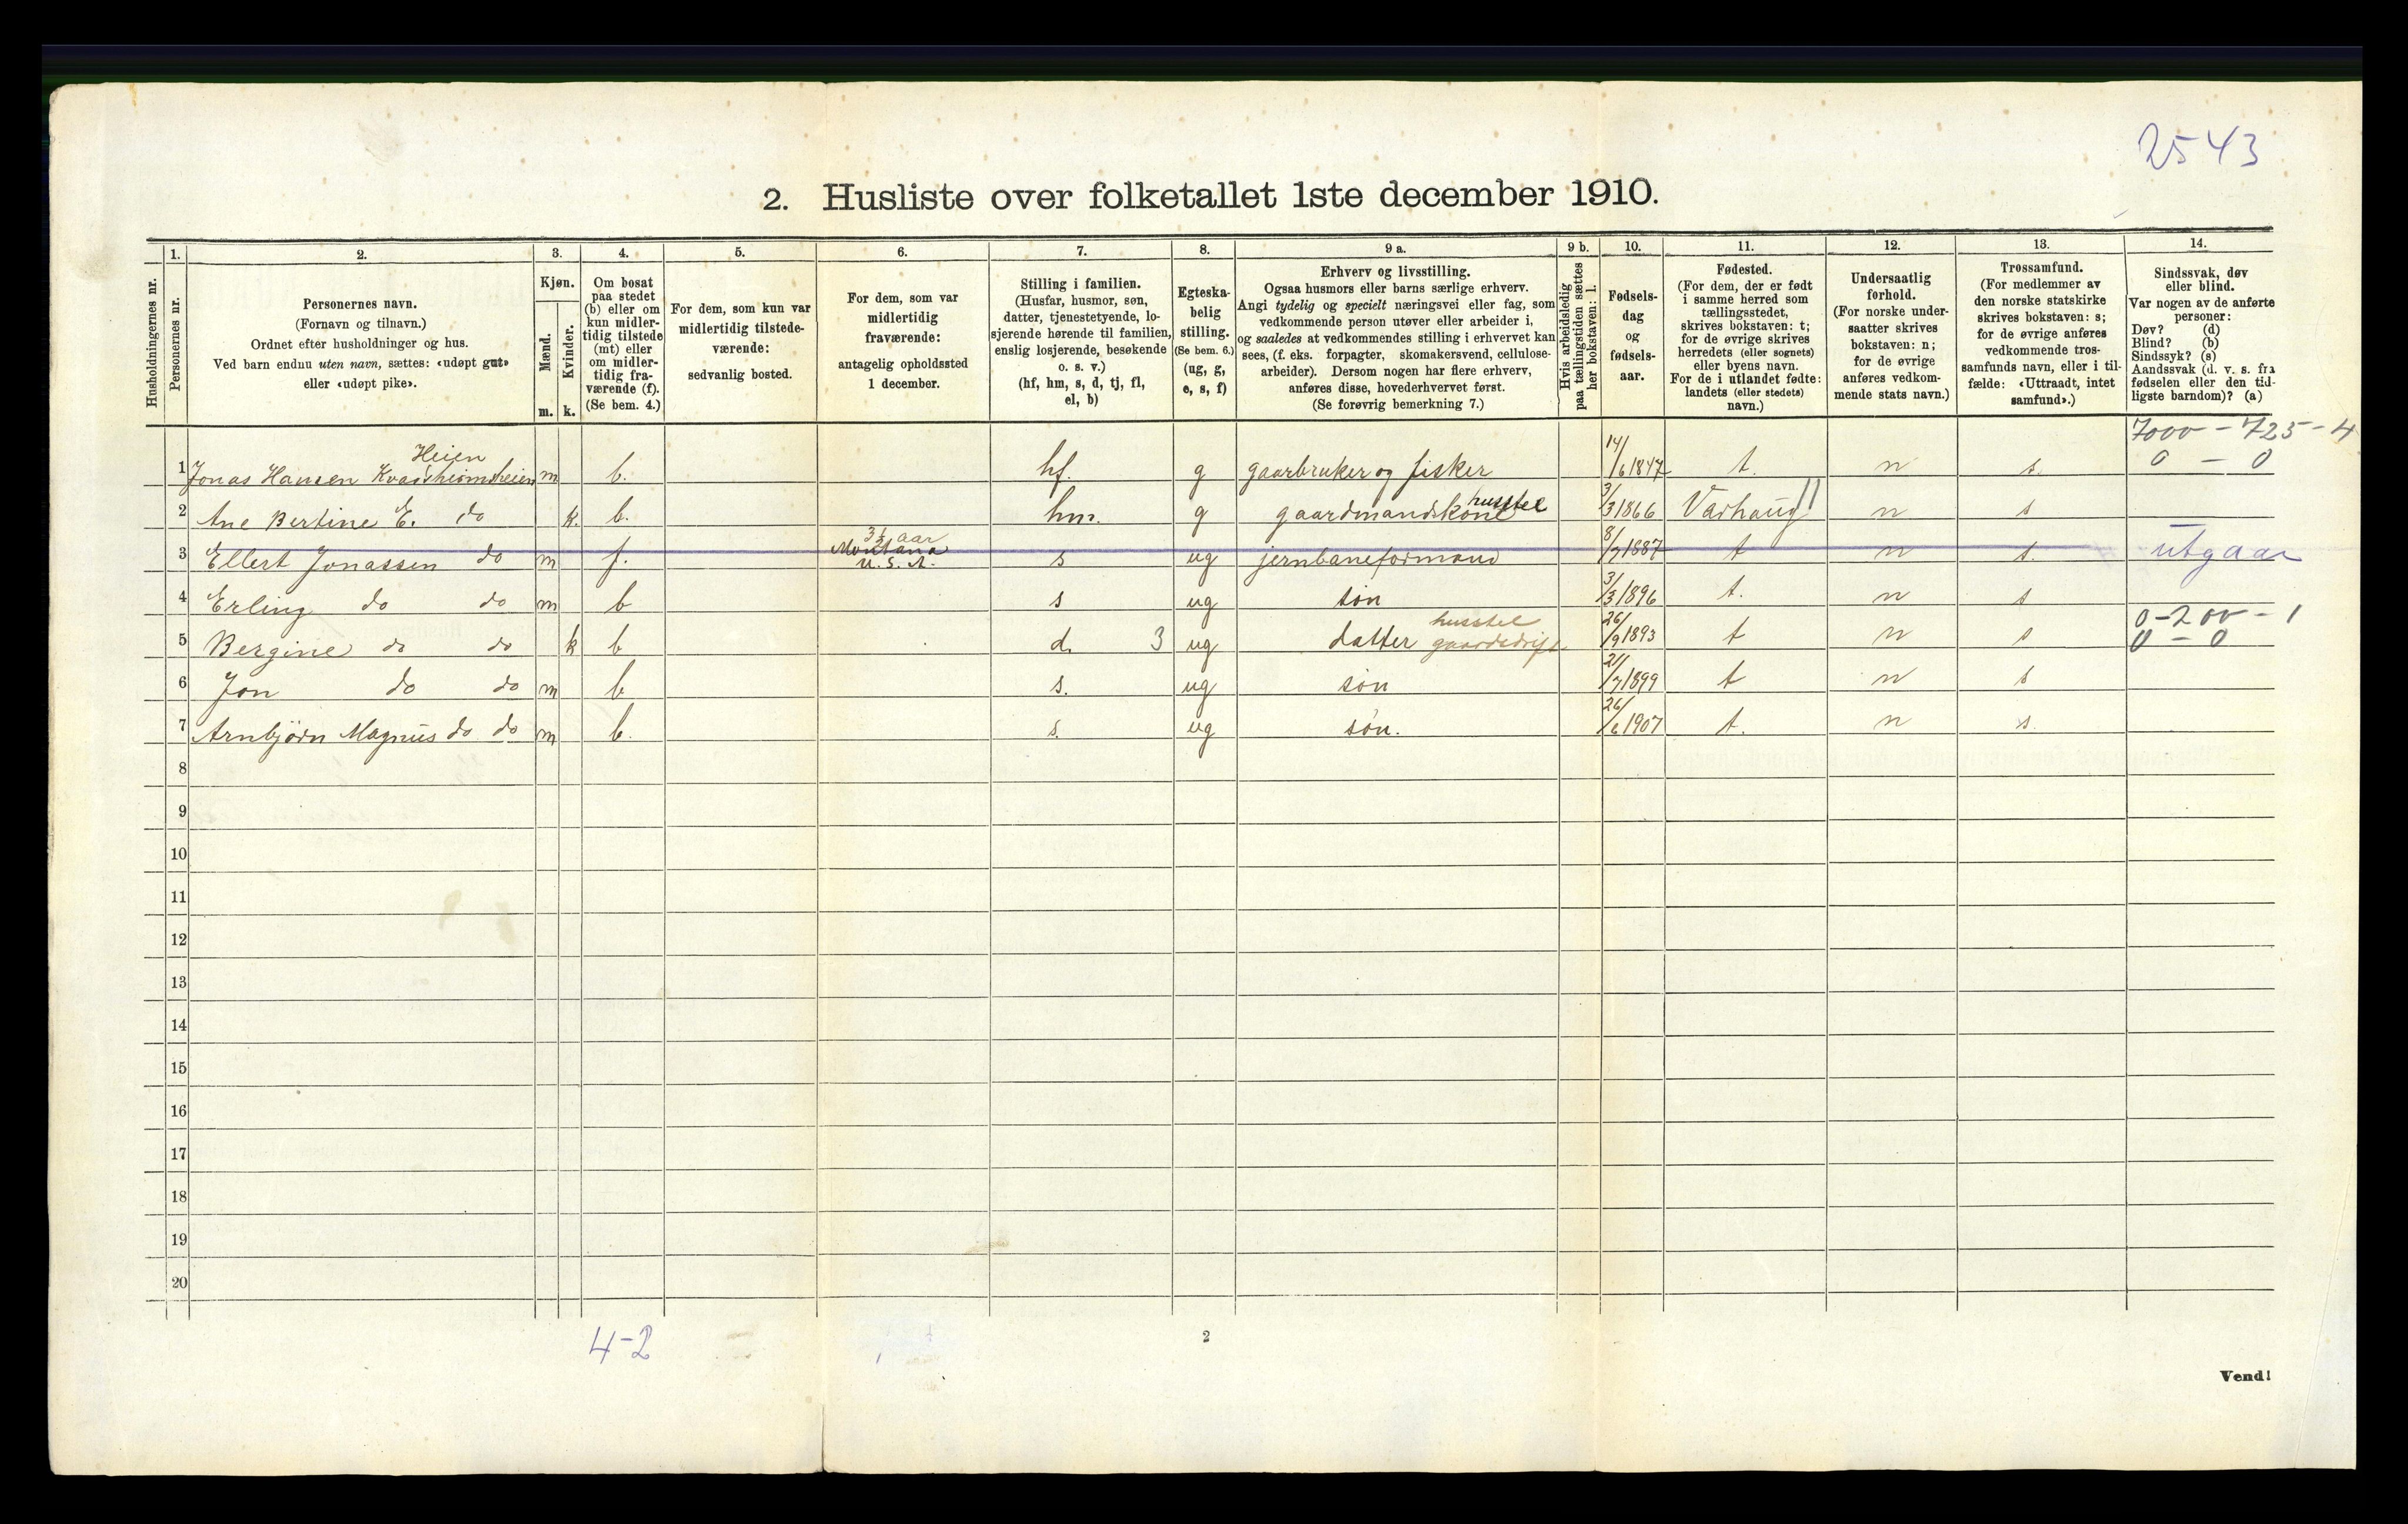 2543
2. Husliste over folketallet 1ste december 1910.
Husholdningernes nr.
1.
Personernes nr.
2.
Personernes navn.
(Fornavn og tilnavn.)
Ordnet efter husholdninger og hus.
Ved barn endnu uten navn, sættes: «udøpt gut»
eller «udøpt pike».
3.
Kjøn.
Mænd.
m.
Kvinder.
k.
4.
Om bosat
paa stedet
(b) eller om
kun midler-
tidig tilstede
(mt) eller
om midler-
tidig fra-
værende (f).
(Se bem. 4.)
5.
For dem, som kun var
midlertidig tilstede-
værende:
sedvanlig bosted.
6.
For dem, som var
midlertidig
fraværende:
antagelig opholdssted
1 december.
7.
Stilling i familien.
(Husfar, husmor, søn,
datter, tjenestetyende, lo-
sjerende hørende til familien,
enslig losjerende, besøkende
o. s. v.)
(hf, hm, s, d, tj, fl,
el, b)
8.
Egteska-
belig
stilling.
(Se bem. 6.)
(ug, g,
e, s, f)
9 a.
Erhverv og livsstilling.
Ogsaa husmors eller barns særlige erhverv.
Angi tydelig og specielt næringsvei eller fag, som
vedkommende person utøver eller arbeider i,
og saaledes at vedkommendes stilling i erhvervet kan
sees, (f. eks. forpagter, skomakersvend, cellulose-
arbeider). Dersom nogen har flere erhverv,
anføres disse, hovederhvervet først.
(Se forøvrig bemerkning 7.)
9 b.
Hvis arbeidsledig
paa tællingstiden sættes
her bokstaven: l.
10.
Fødsels-
dag
og
fødsels-
aar.
11.
Fødested.
(For dem, der er født
i samme herred som
tællingsstedet,
skrives bokstaven: t;
for de øvrige skrives
herredets (eller sognets)
eller byens navn.
For de i utlandet fødte:
landets (eller stedets)
navn.)
12.
Undersaatlig
forhold.
(For norske under-
saatter skrives
bokstaven: n;
for de øvrige
anføres vedkom-
mende stats navn.)
13.
Trossamfund.
(For medlemmer av
den norske statskirke
skrives bokstaven: s;
for de øvrige anføres
vedkommende tros-
samfunds navn, eller i til-
fælde: «Uttraadt, intet
samfund».)
14.
Sindssvak, døv
eller blind.
Var nogen av de anførte
personer:
Døv? (d)
Blind? (b)
Sindssyk? (s)
Aandssvak (d. v. s. fra
fødselen eller den tid-
ligste barndom)? (a)
7000 - 725 - 4
Heien
1 Jonas Hansen Kvasheimsheien m b. hf. g gaarbruker og fisker 14/6 1847 t. n s. 0 - 0
husstel
2 Ane Bertine E. do k. b. hm. g gaardmandskone 3/3 1866 Varhaug n s
3½ aar
3 Ellert Jonassen do m f. Montana s ug jernbaneformand 8/7 1887 t n s. utgaar
U. S. A.
4 Erling do do m b s ug søn 3/3 1896 t. n s
husstel 0 - 200 - 1
5 Bergine do do k b d. 3 ug datter gaardsdrift 26/9 1893 t n s 0 - 0
6 Jon do do m b s. ug søn 21/7 1899 t n s
7 Arnbjørn Magnus do do m b. s. ug søn. 26/6 1907 t. n s.
8
9
10
11
12
13
14
15
16
17
18
19
20
4-2
2
Vend!